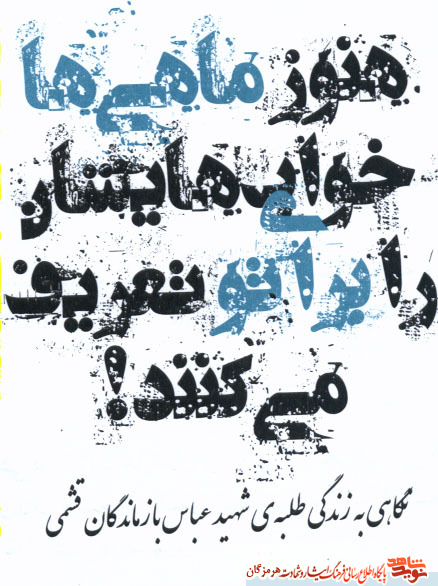 هنوز ماهی‌ها
خواب‌هایشان
را برای تو تعریف
می‌کنند!
نگاهی به زندگی طلبه‌ی شهید عباس بازماندگان قشمی
نوید شاهد
پایگاه اطلاع رسانی فرهنگ ایثار و شهادت هرمزگان